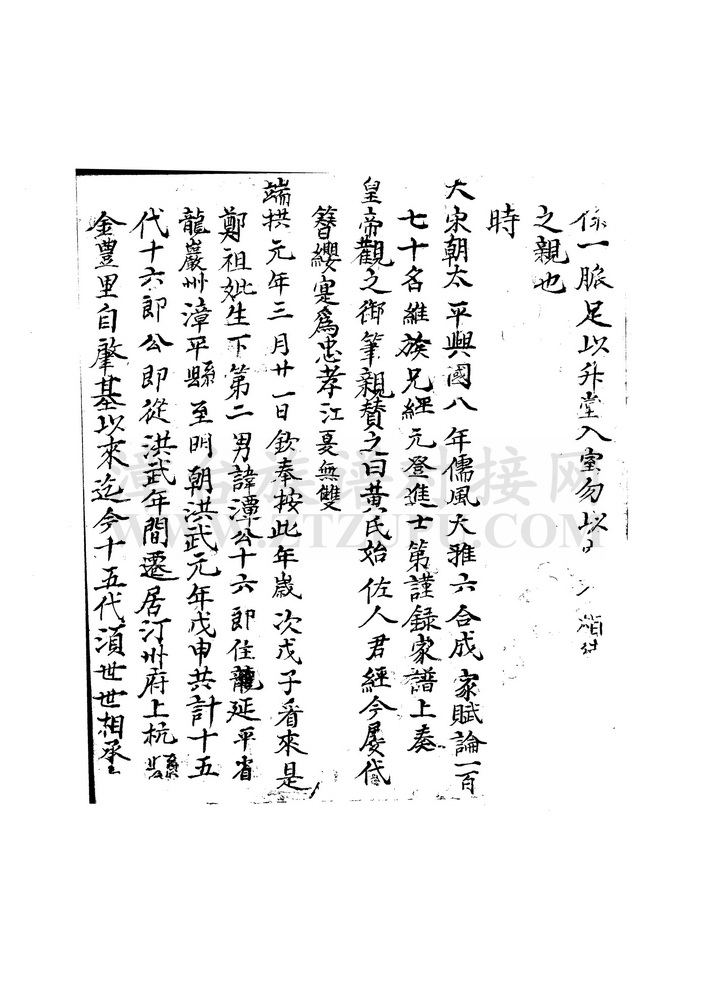 係一脈足以升堂入室勿以
之親也
時
大宋朝太平興國八年儒風大雅六合成家賦論一百
七十名維族兄經元登進士第謹錄家譜上奏
皇帝觀之御筆親賛之曰黄氏始佐人君經今屡代
簪纓寔爲忠孝江夏無雙
端拱元年三月廿一日欽奉按此年歲次戊子看來是
鄭祖妣生下第二男諱潭公十六郎住龍延平省
龍巖州漳平縣至明朝洪武元年戊申共計十五
代十六郎公即從洪武年間遷居汀州府上杭
金豐里自肇基以來迄今十五代湏世世相承
漳台族谱对接网
WWW.ZTZUPU.COM